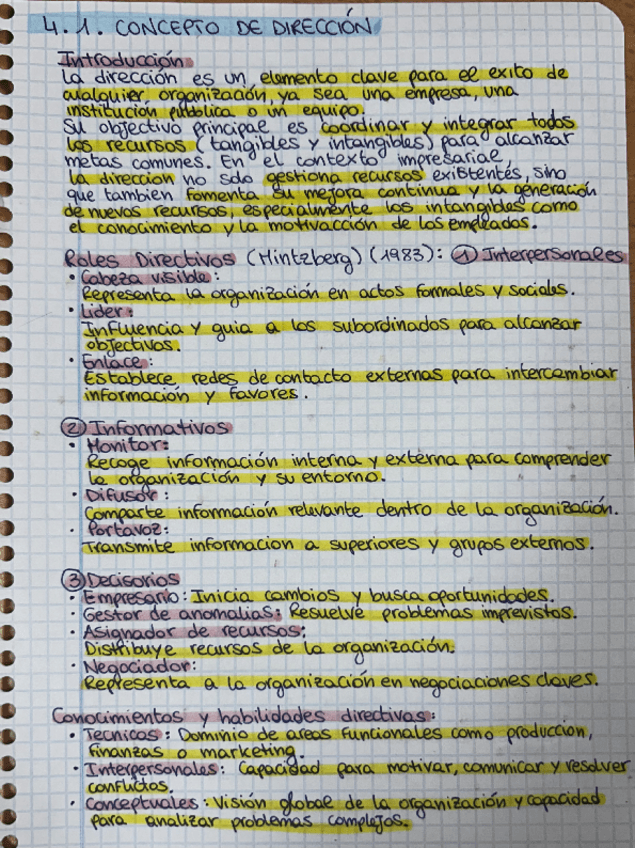 4.1. CONCEPTO DE DIRECCIÓN
Introducción
La dirección es un elemento clave para el exito de
cualquier organización, ya sea una empresa, una
institución pública o un equipo.
Su objectivo principal es coordinar y integrar todos
los recursos (tangibles y intangibles) para alcanzar
metas comunes. En el contexto impresarial,
la direccion no solo gestiona recursos existentés, sino
que tambien fomenta su mejora continua y la generación
de nuevos recursos, especialmente los intangibles como
el conocimiento y la motivacción de los empleados.
Roles Directivos (Mintzberg) (1983): ① Interpersonales
• Cabeza visible:
Representa la organización en actos formales y sociales.
• Lider:
Influencia y guia a los subordinados para alcanzar
objectivos.
• Enlace:
Establece redes de contacto externas para intercambiar
información y favores.
② Informativos
• Monitor:
Recoge información interna y externa para comprender
la organización y su entorno.
• Difusor:
Comparte información relevante dentro de la organización.
• Portavoz:
Transmite informacion a superiores y grupos externos.
③ Decisorios
• Empresario: Inicia cambios y busca oportunidades.
• Gestor de anomalias: Resuelve problemas imprevistos.
• Asignador de recursos:
Distribuye recursos de la organización.
• Negociador:
Representa a la organización en negociaciones claves.
Conocimientos y habilidades directivas:
• Tecnicos: Dominio de areas funcionales como produccion,
finanzas o marketing.
• Interpersonales: Capacidad para motivar, comunicar y resolver
conflictos.
• Conceptuales: Visión global de la organización y capacidad
para analizar problemas complejos.